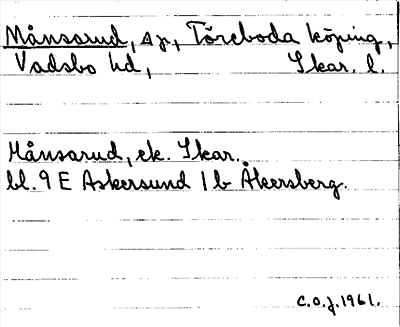 Månsarud, ä g, Töreboda köping,
Vadsbo hd, Skar. l.
Månsarud, ek. Skar.
bl. 9 E Askersund 1 b Åkersberg.
C.O.J. 1961.